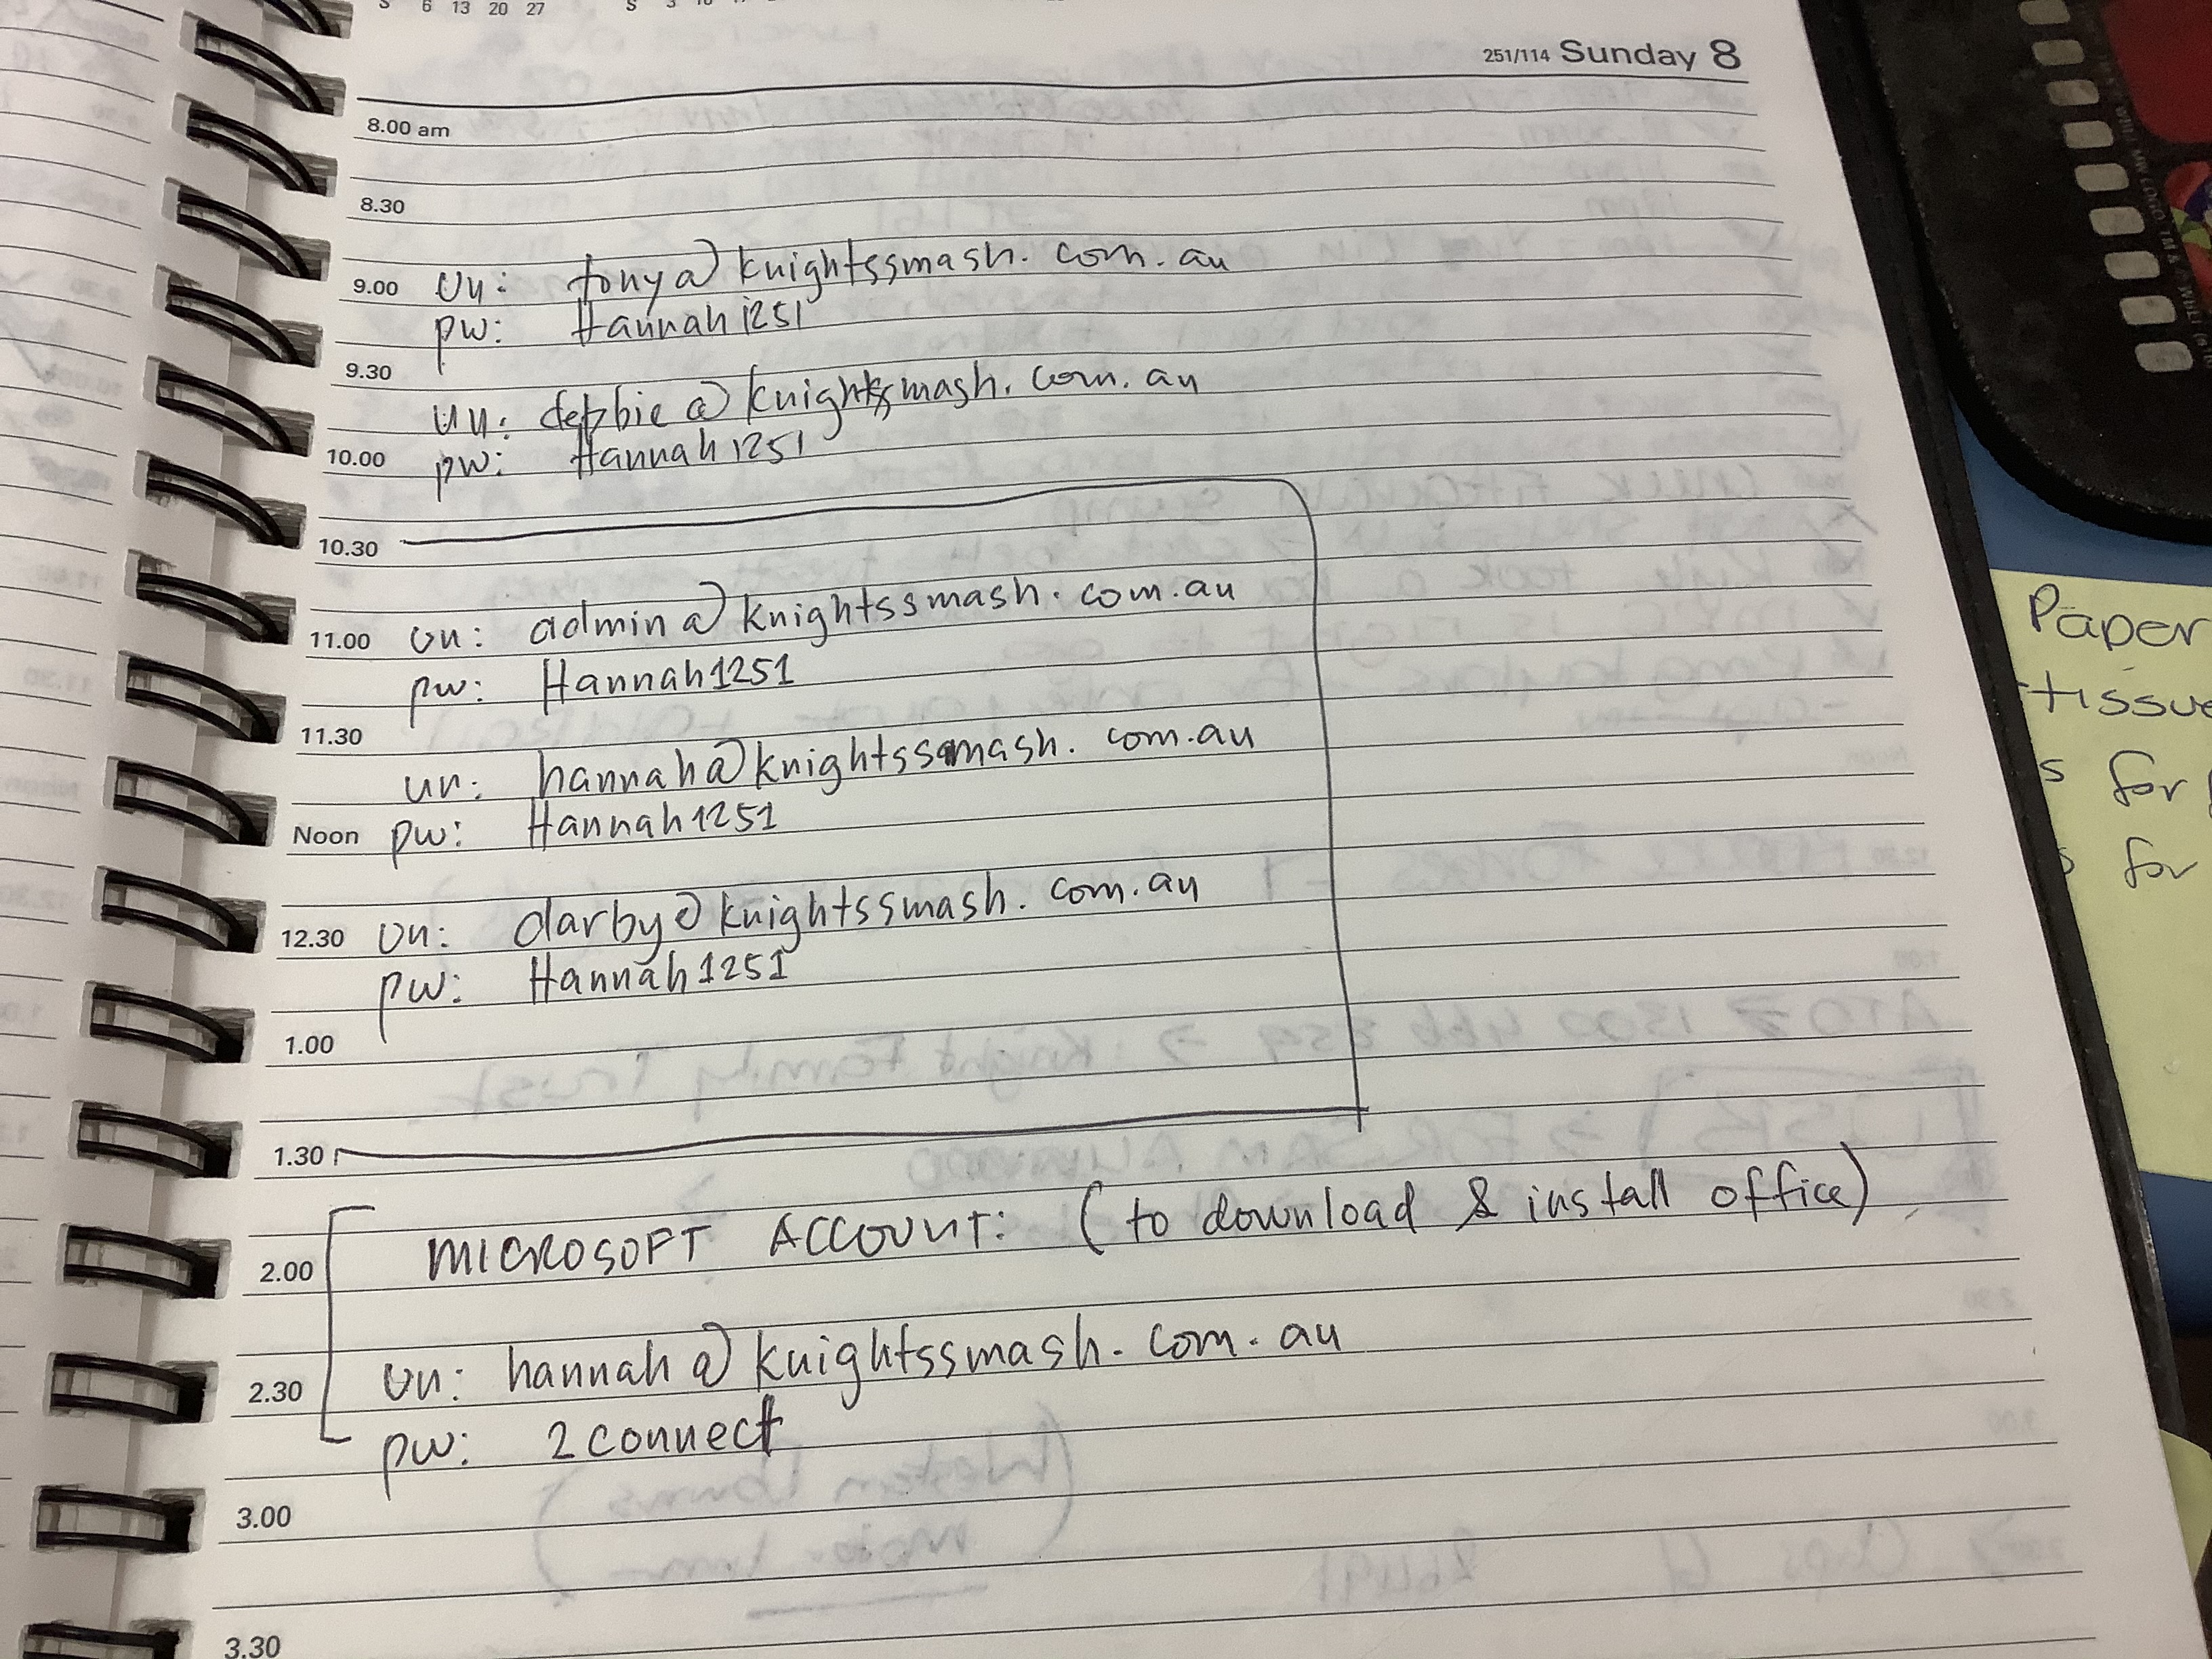 S 6 13 20 27
251/114 Sunday 8
8.00 am
8.30
9.00 un: tony@knightssmash.com.au
pw: Hannah1251
9.30
un: debbie@knightssmash.com.au
10.00 pw: Hannah1251
10.30
11.00 un: admin@knightssmash.com.au
pw: Hannah1251
11.30
un: hannah@knightssmash.com.au
Noon pw: Hannah1251
12.30 un: darby@knightssmash.com.au
pw: Hannah1251
1.00
1.30
2.00 MICROSOFT ACCOUNT: (to download & install office)
2.30 un: hannah@knightssmash.com.au
pw: 2connect
3.00
3.30
Paper
tissue
s for
for